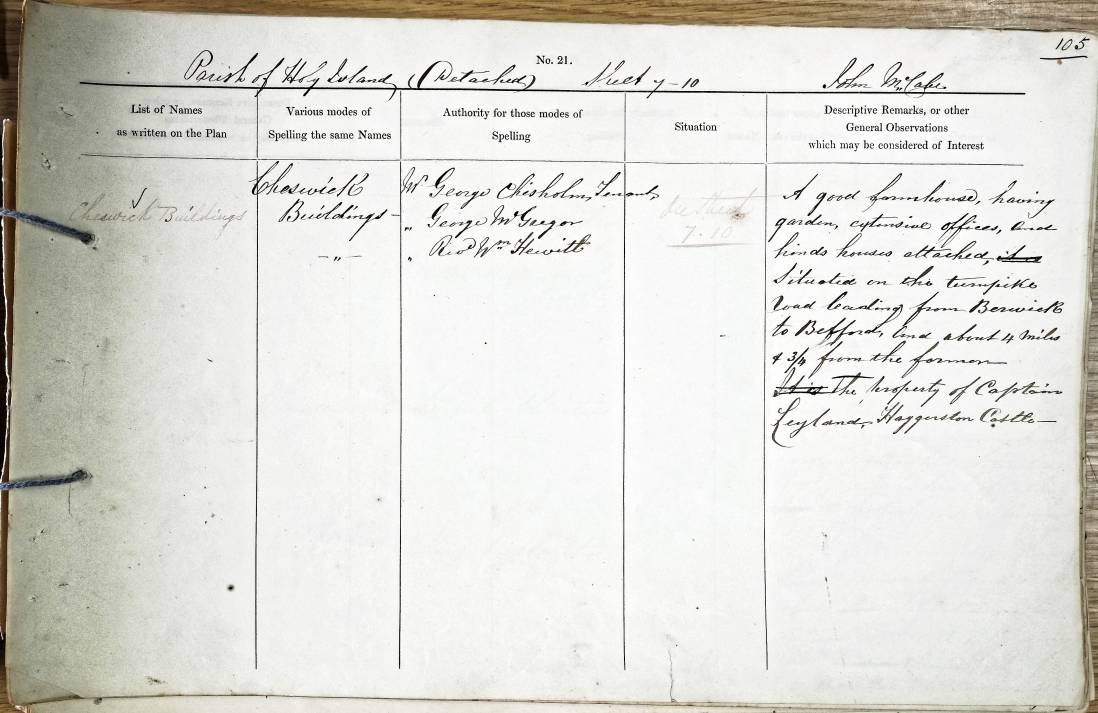 105
No. 21.
Parish of Holy Island (Detached) Sheet 7-10 John McCabe
List of Names
as written on the Plan
Various modes of
Spelling the same Names
Authority for those modes of
Spelling
Situation
Descriptive Remarks, or other
General Observations
which may be considered of Interest
Cheswick Buildings
Cheswick
Buildings -
- „ -
Mr George Chisholm, Tenant,
„ George McGregor
„ Revd Wm Hewitt
7.10
A good farmhouse, having
garden, extensive offices, and
hinds houses attached, it is
Situated on the turnpike
road leading from Berwick
to Belford, and about 4 miles
& 3/4 from the former
It is The property of Captain
Leyland, Haggerston Castle —